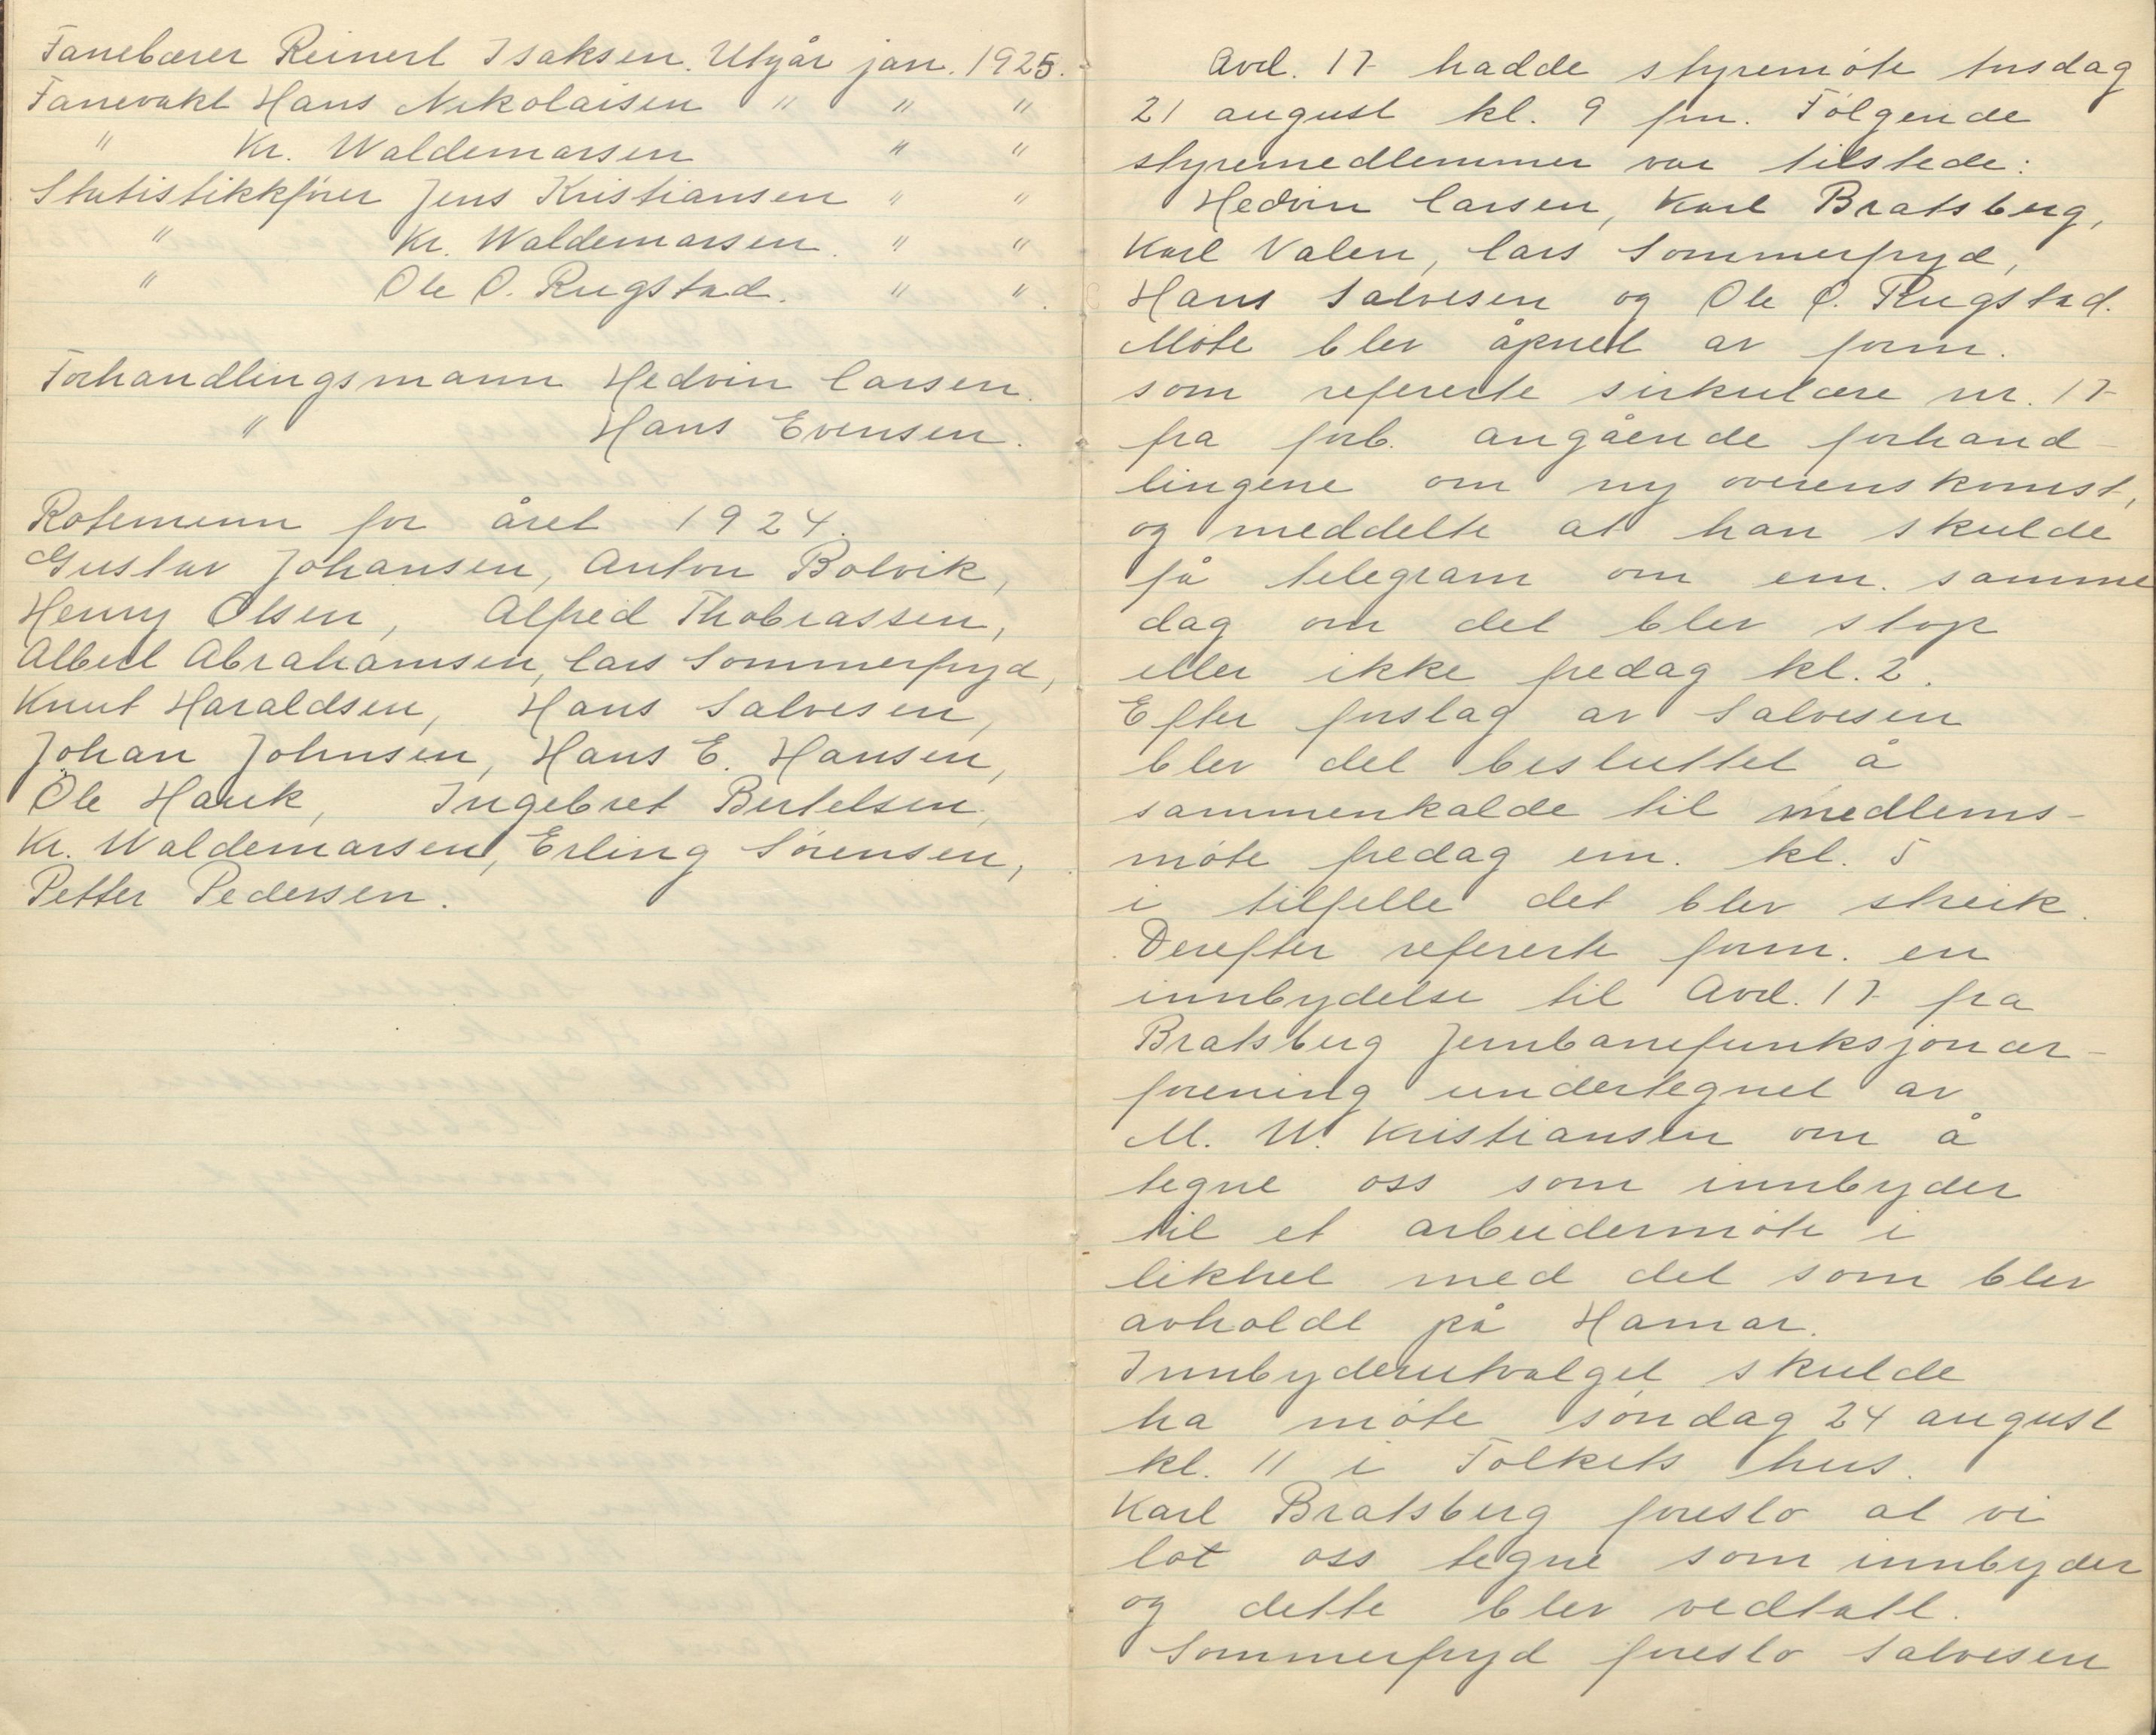 Fanebærer Reinert Isaksen. Utgår jan. 1925.
Fanevakt Hans Nikolaisen " " "
" Kr. Waldemarsen " "
Statistikkfører Jens Kristiansen " "
" Kr. Waldemarsen. " "
" Ole O. Rugstad. " ".
Forhandlingsmann Hedvin Larsen.
" Hans Evensen.
Rotemenn for året 1924.
Gustav Johansen, Anton Bolvik,
Henry Olsen, Alfred Thobiassen,
Albert Abrahamsen, Lars Sommerfryd,
Knut Haraldsen, Hans Salvesen,
Johan Johnsen, Hans E. Hansen,
Ole Hauk, Ingebret Bertelsen,
Kr. Waldemarsen, Erling Sørensen,
Petter Pedersen.
Avd. 17 hadde styremøte torsdag
21 august kl. 9 fm. Følgende
styremedlemmer var tilstede:
Hedvin Larsen, Karl Bratsberg,
Karl Valen, Lars Sommerfryd,
Hans Salvesen og Ole O. Rugstad.
Møte blev åpnet av form.
som refererte sirkulære nr. 17
fra forb. angående forhand-
lingene om ny overenskomst,
og meddelte at han skulde
få telegram om em. samme
dag om det blev stop
eller ikke fredag kl. 2.
Efter forslag av Salvesen
blev det besluttet å
sammenkalde til medlems-
møte fredag em. kl. 5
i tilfelle det blev streik.
Derefter refererte form. en
innbydelse til Avd. 17 fra
Bratsberg Jernbanefunksjonær-
forening undertegnet av
M. W. Kristiansen om å
tegne oss som innbyder
til et arbeidermøte i
likhet med det som blev
avholdt på Hamar.
Innbyderutvalget skulde
ha møte søndag 24 august
kl. 11 i Folkets hus.
Karl Bratsberg foreslo at vi
lot oss tegne som innbyder
og dette blev vedtatt.
Sommerfryd foreslo Salvesen